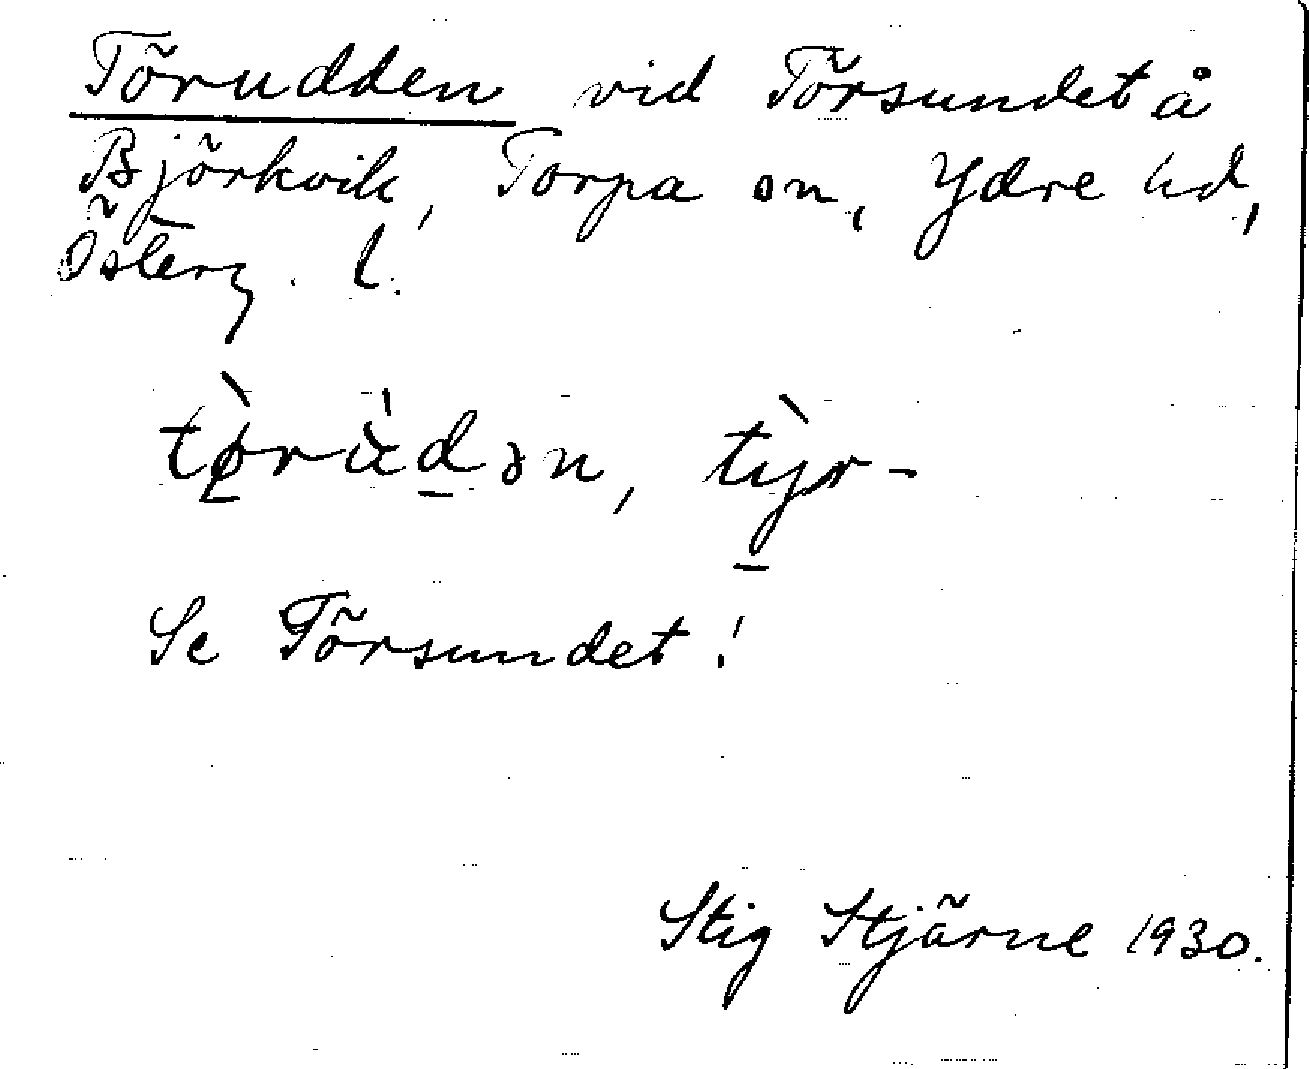 Törudden vid Törsundet å
Björkvik, Torpa sn, Ydre hd,
Österg. l.
tø̀rùdən, tỳr-
Se Törsundet!
Stig Stjärne 1930.